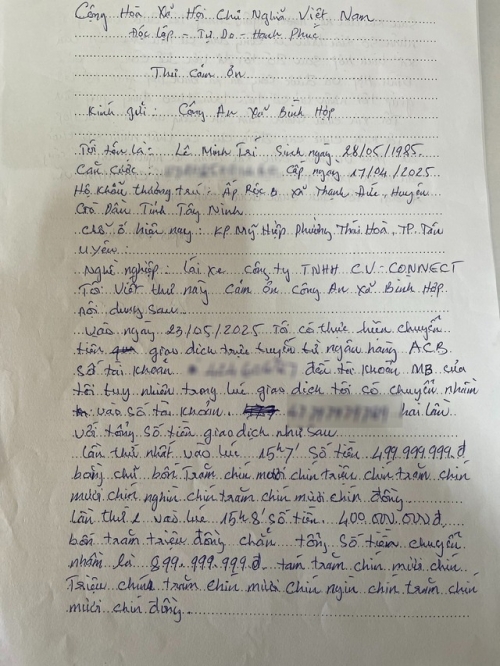 Công Hoà Xã Hội Chủ Nghĩa Việt Nam
Độc lập - Tự Do - Hạnh Phúc
Thư Cám Ơn
Kính gửi: Công An Xã Bình Hợp
Tôi tên là: Lê Minh Trí Sinh ngày 28/05/1985.
Căn cước: Cấp ngày 17/04/2025
Hộ khẩu thường trú: Ấp Rộc B xã Thạnh Đức, Huyện
Gò Dầu Tỉnh Tây Ninh
Chổ ở hiện nay: KP. Mỹ Hiệp Phường Thái Hoà, TP. Tân
Uyên.
Nghề nghiệp: lái xe công ty TNHH C.V-CONNECT
Tôi Viết thư này Cám Ơn Công An Xã Bình Hợp.
nội dung sau
Vào ngày 23/05/2025 Tôi có thực hiện chuyển
tiền giao dịch trực tuyến từ ngân hàng A.C.B.
Số tài khoản đến tài khoản MB của
tôi tuy nhiên trong lúc giao dịch tôi có chuyển nhầm
vào số tài khoản hai lần
với tổng số tiền giao dịch như sau
lần thứ nhất vào lúc 15h7' số tiền 499.999.999.đ
bằng chữ bốn Trăm chín mươi chín triệu chín trăm chín
mươi chín nghìn chín trăm chín mươi chín đồng
lần thứ 2 vào lúc 15h8' số tiền 400.000.000đ
bốn trăm triệu đồng chẳn tổng số tiền chuyển
nhầm là 899.999.999.đ tám trăm chín mươi chín
Triệu chín trăm chín mươi chín ngìn chín trăm chín
mươi chín đồng